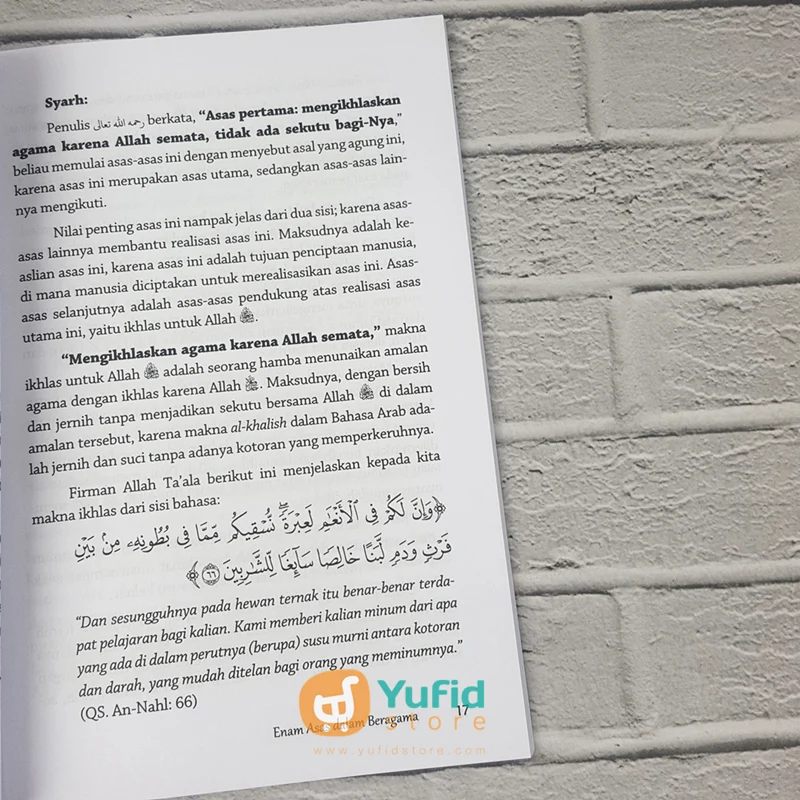 Syarh:
Penulis رحمه الله تعالى berkata, “Asas pertama: mengikhlaskan
agama karena Allah semata, tidak ada sekutu bagi-Nya,”
beliau memulai asas-asas ini dengan menyebut asal yang agung ini,
karena asas ini merupakan asas utama, sedangkan asas-asas lain-
nya mengikuti.
Nilai penting asas ini nampak jelas dari dua sisi; karena asas-
asas lainnya membantu realisasi asas ini. Maksudnya adalah ke-
aslian asas ini, karena asas ini adalah tujuan penciptaan manusia,
di mana manusia diciptakan untuk merealisasikan asas ini. Asas-
asas selanjutnya adalah asas-asas pendukung atas realisasi asas
utama ini, yaitu ikhlas untuk Allah.
“Mengikhlaskan agama karena Allah semata,” makna
ikhlas untuk Allah adalah seorang hamba menunaikan amalan
agama dengan ikhlas karena Allah. Maksudnya, dengan bersih
dan jernih tanpa menjadikan sekutu bersama Allah di dalam
amalan tersebut, karena makna al-khalish dalam Bahasa Arab ada-
lah jernih dan suci tanpa adanya kotoran yang memperkeruhnya.
Firman Allah Ta’ala berikut ini menjelaskan kepada kita
makna ikhlas dari sisi bahasa:
﴿وَإِنَّ لَكُمْ فِي الْأَنْعَامِ لَعِبْرَةً ۖ نُّسْقِيكُم مِّمَّا فِي بُطُونِهِ مِن بَيْنِ
فَرْثٍ وَدَمٍ لَّبَنًا خَالِصًا سَائِغًا لِّلشَّارِبِينَ ٦٦﴾
“Dan sesungguhnya pada hewan ternak itu benar-benar terda-
pat pelajaran bagi kalian. Kami memberi kalian minum dari apa
yang ada di dalam perutnya (berupa) susu murni antara kotoran
dan darah, yang mudah ditelan bagi orang yang meminumnya.”
(QS. An-Nahl: 66)
Enam Asas dalam Beragama 17
Yufid
store
www.yufidstore.com